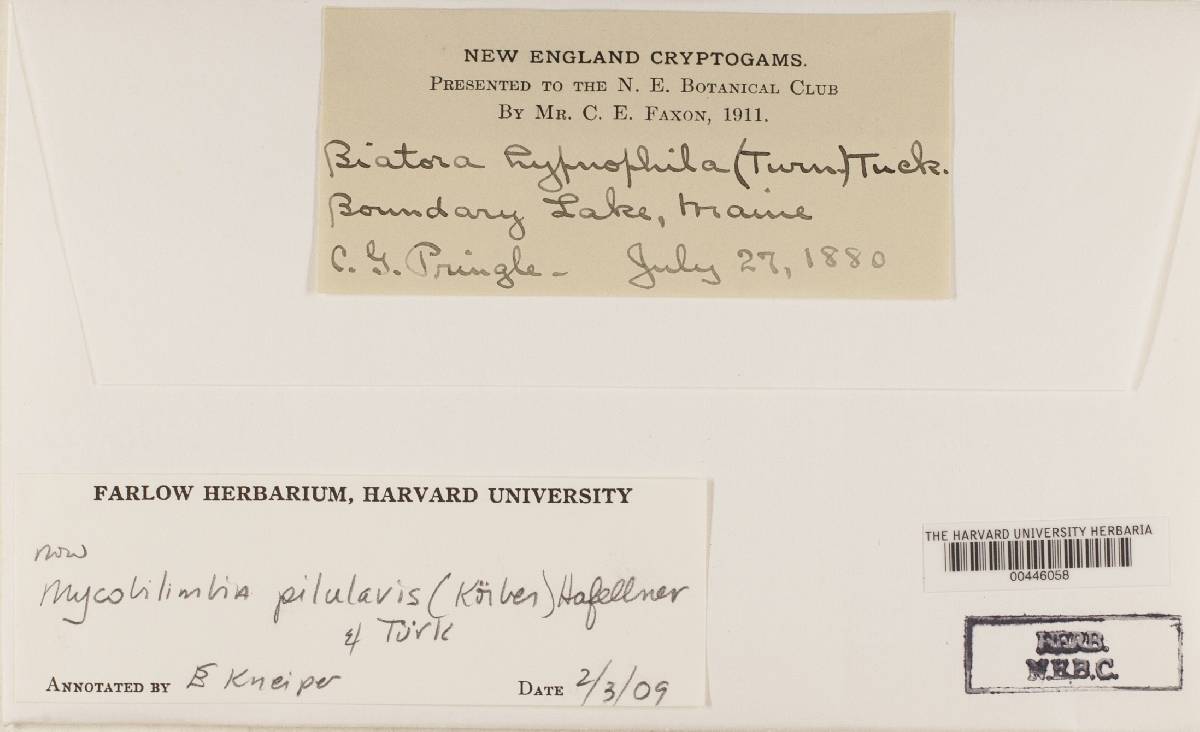 NEW ENGLAND CRYPTOGAMS.
PRESENTED TO THE N. E. BOTANICAL CLUB
BY MR. C. E. FAXON, 1911.
Biatora hypnophila (Turn.) Tuck.
Boundary Lake, Maine
C. G. Pringle - July 27, 1880
FARLOW HERBARIUM, HARVARD UNIVERSITY
now
Mycobilimbia pilularis (Körber) Hafellner
& Türk
ANNOTATED BY E Kneiper DATE 2/3/09
THE HARVARD UNIVERSITY HERBARIA
00446058
HERB.
N.E.B.C.